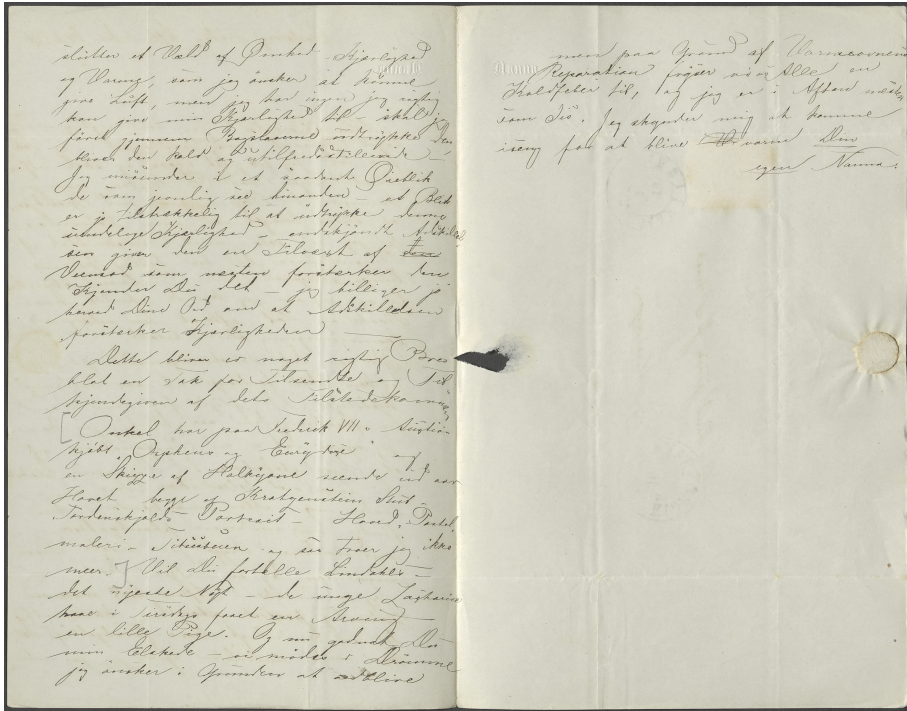 slutter et Væld af Ømhed Kjærlighed
og Varme, som jeg ønsker at kunne
give Luft, men jeg har ingen jeg rigtig
kan give min Kjærlighed til – skal
først gjennem Bogstaverne udtrykke den
bliver den kold og utilfredsstillende –
jeg misunder i et saadant Øieblik
de som jevnlig see hinanden – et Blik
er jo tilstrækkelig til at udtrykke denne
uendelige Kjærlighed – endskjøndt
giver den en Tilvæxt af
Veemod som næsten forstærker den
Kjender Du det – jeg billiger jo
herved Dine Ord om at Adskillelsen
forstærker Kjærligheden
Dette bliver et noget rigtig
blot en Tak for Tilsendte og Til
kjendegiven af dets Tilstedekomst
[Onkel har paa Frederik VII's Auction
kjøbt "Orpheus og Eurydice" og
en Skizze af Halkyone seende ud over
Havet begge af Kratzenstein Stub
Tordenskjolds Portrait – Hoved, Pastel
maleri – og saa troer jeg ikke
meer.] Vil Du fortælle Lindahls –
det nyeste Nyt – de unge Zacharias
have i faaet en Arving
en lille Pige. Og nu godnat Du
min Elskede – vi mødes i Drømme
jeg ønsker i Grunden at blive
men paa Grund af
Reparation fryser vi Alle en
Koldfeber til, og jeg er i Aften næsten
som Iis. Jeg skynder mig at komme
iseng for at blive varm Din
egen Nanna.
Nanna